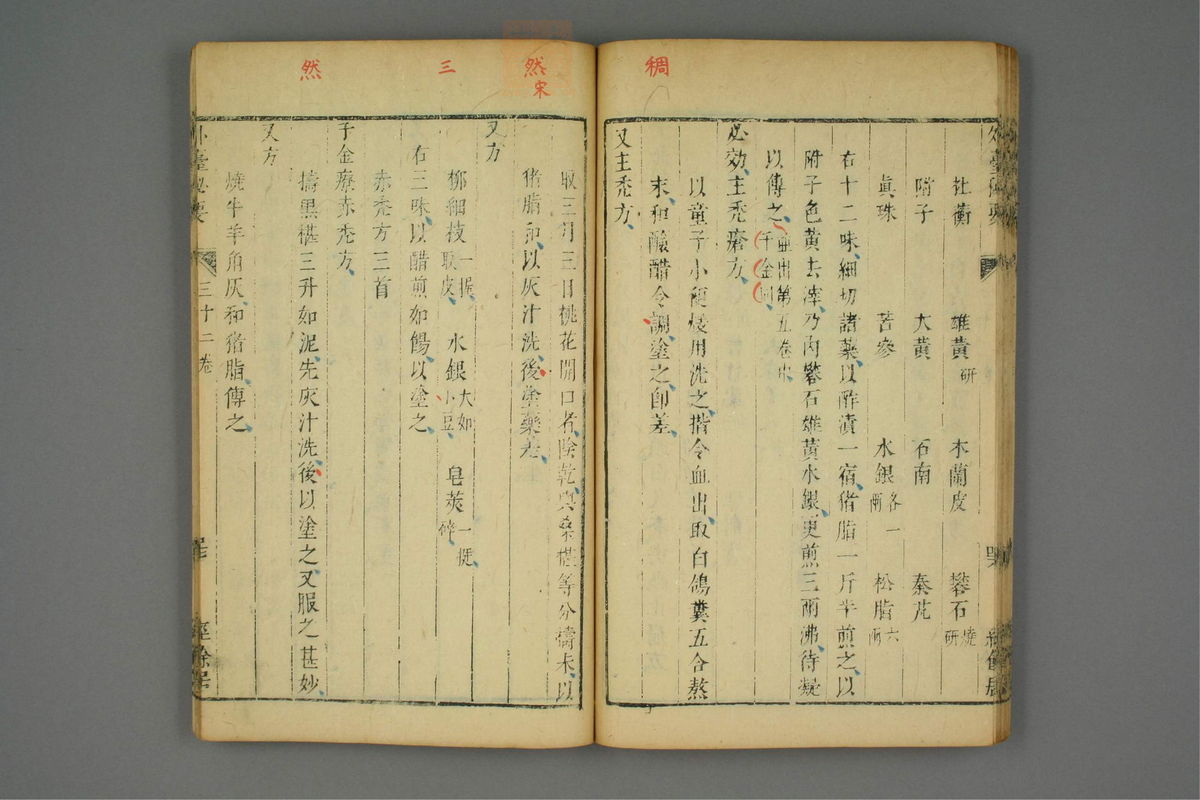 稠
杜衡　雄黃研　木蘭皮　礬石燒研
附子　大黃　石南　秦艽
真珠　苦參　水銀各一兩　松脂六兩
右十二味細切諸藥以酢漬一宿猪脂一斤半煎之以
附子色黃去滓乃內礬石雄黃水銀更煎三兩沸待凝
以傅之並出第五卷中千金同
必効主禿瘡方
以童子小便煖用洗之揩令血出取白鴿糞五合熬
末和醶醋令調塗之卽差
又主禿方
然宋
三
然
取三月三日桃花開口者陰乾與桑椹等分擣末以
猪脂和以灰汁洗後塗藥差
又方
柳細枝一握取皮　水銀大如小豆　皂莢一挺碎
右三味以醋煎如餳以塗之
赤禿方三首
千金療赤禿方
擣黑椹三升如泥先灰汁洗後以塗之又服之甚妙
又方
燒牛羊角灰和猪脂傅之
外臺秘要　三十二卷　經餘居